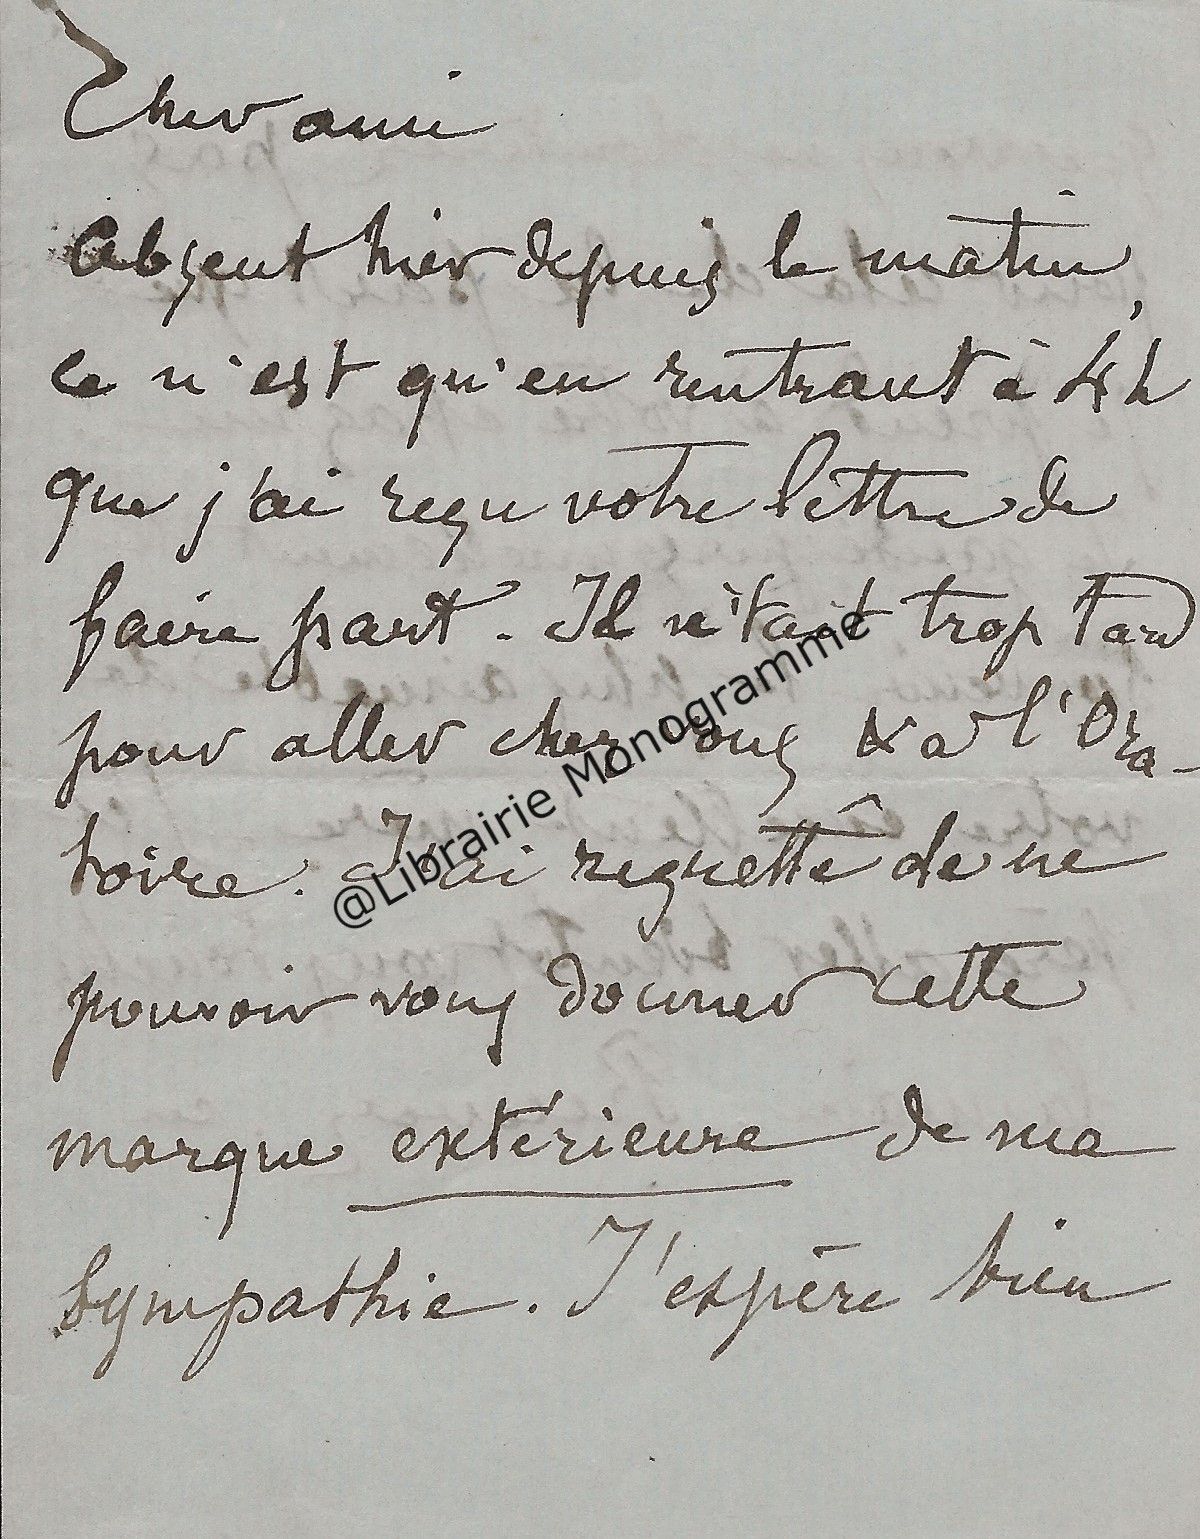 Cher ami
Absent hier depuis le matin,
ce n'est qu'en rentrant à 4 h
que j'ai reçu votre lettre de
faire part. Il était trop tard
pour aller chez vous & à l'Ora-
toire. J'ai regretté de ne
pouvoir vous donner cette
marque extérieure de ma
sympathie. J'espère bien
@Librairie Monogramme